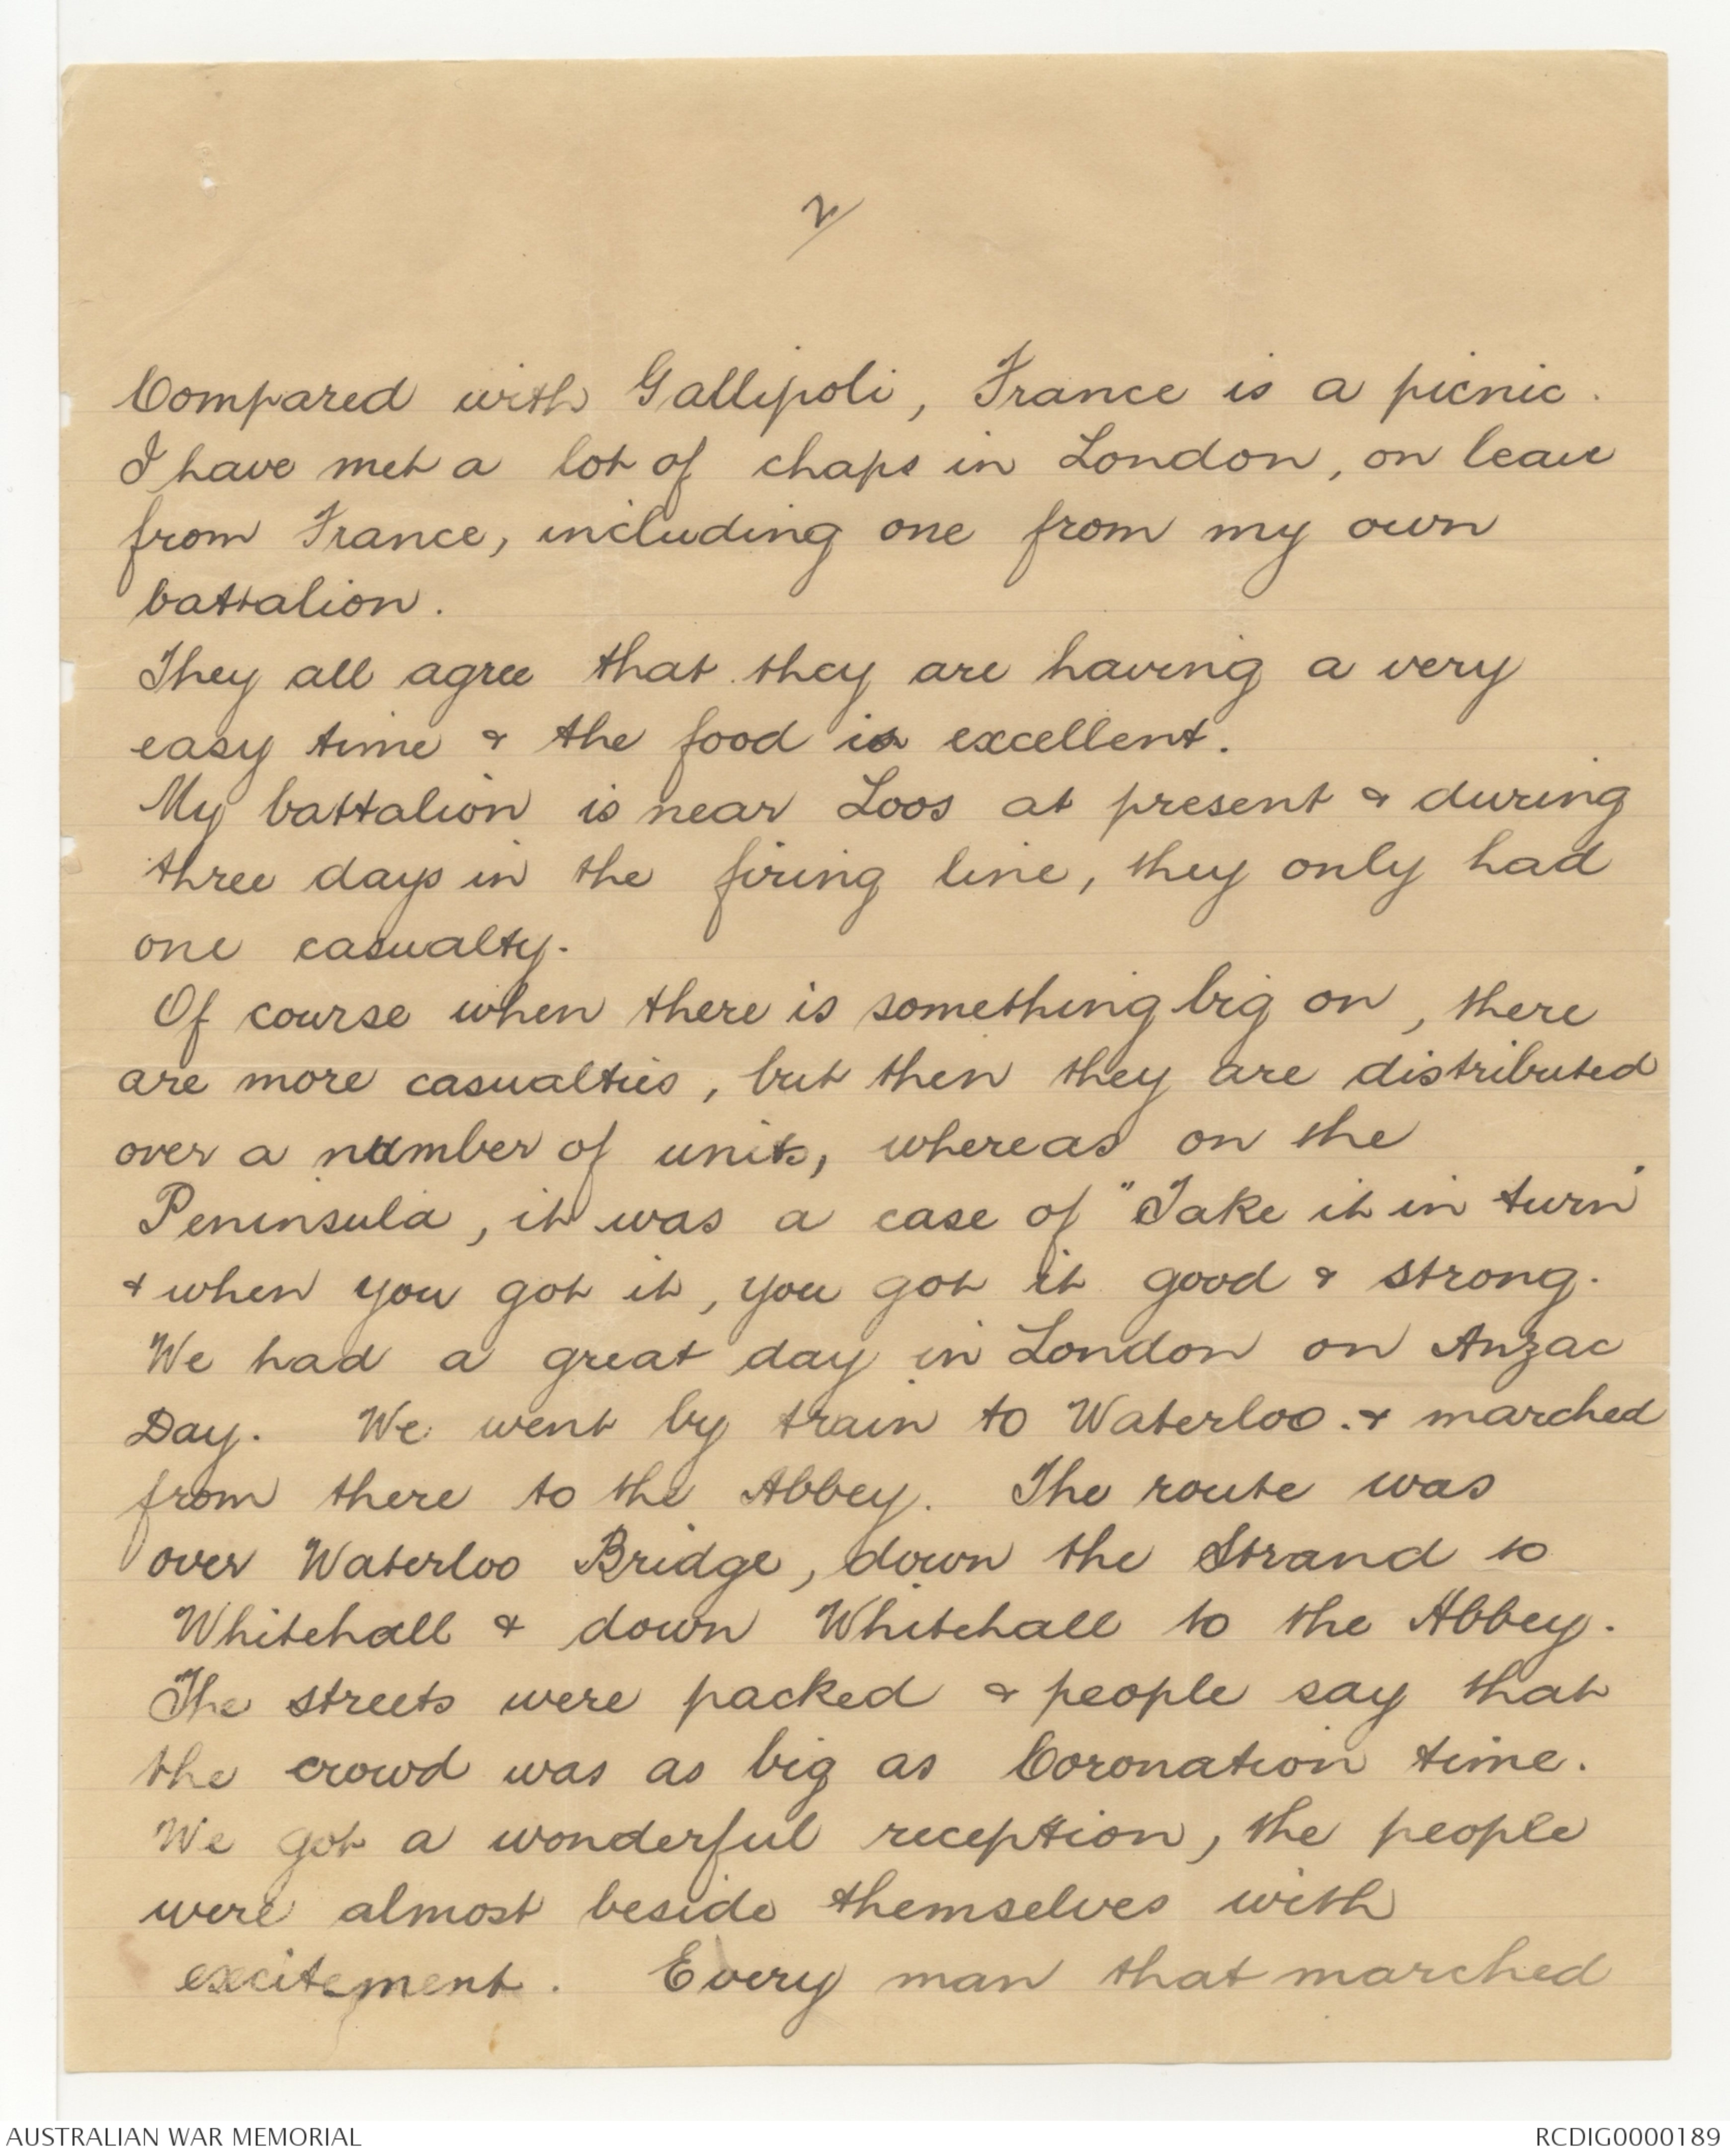 2/
Compared with Gallipoli, France is a picnic.
I have met a lot of chaps in London, on leave
from France, including one from my own
battalion.
They all agree that they are having a very
easy time & the food is excellent.
My battalion is near Loos at present & during
three days in the firing line, they only had
one casualty.
Of course when there is something big on, there
are more casualties, but then they are distributed
over a number of units, whereas on the
Peninsula, it was a case of "Take it in turn"
& when you got it, you got it good & strong.
We had a great day in London on Anzac
Day. We went by train to Waterloo. & marched
from there to the Abbey. The route was
over Waterloo Bridge, down the Strand to
Whitehall & down Whitehall to the Abbey.
The streets were packed & people say that
the crowd was as big as Coronation time.
We got a wonderful reception, the people
were almost beside themselves with
excitement. Every man that marched
AUSTRALIAN WAR MEMORIAL
RCDIG0000189